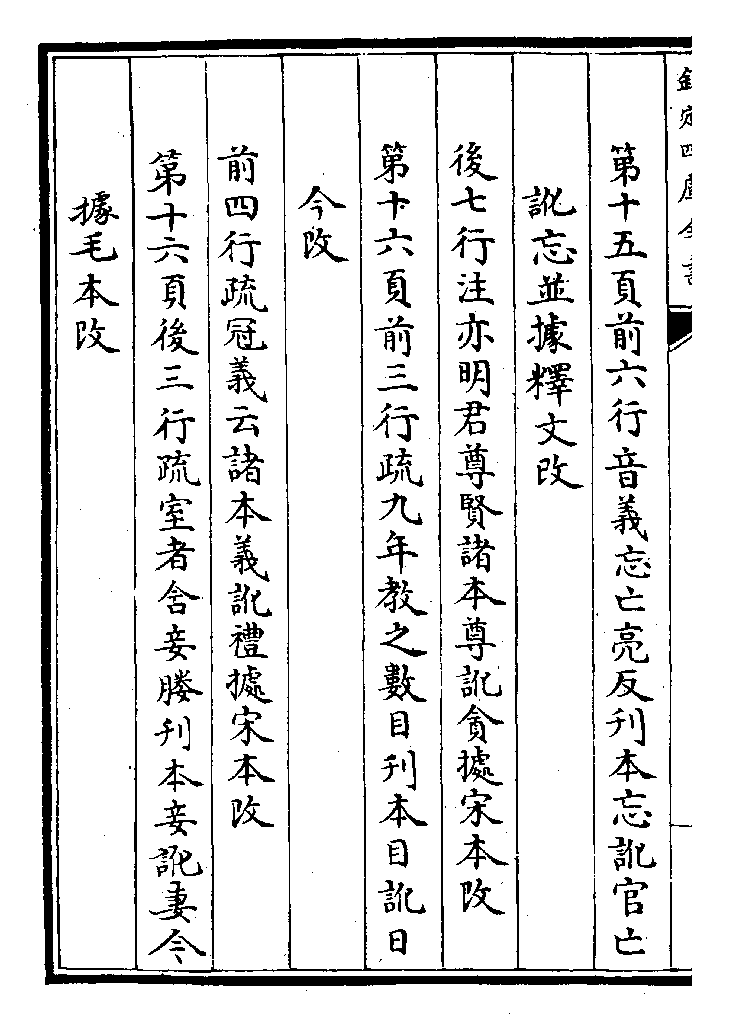 欽定四庫全書
第十五頁前六行音義忘亡亮反刊本忘訛官亡
訛忘並據釋文改
後七行注亦明君尊賢諸本尊訛貪據宋本改
第十六頁前三行疏九年教之數目刊本目訛日
今改
前四行疏冠義云諸本義訛禮據宋本改
第十六頁後三行疏室者含妾媵刊本妾訛妻今
據毛本改